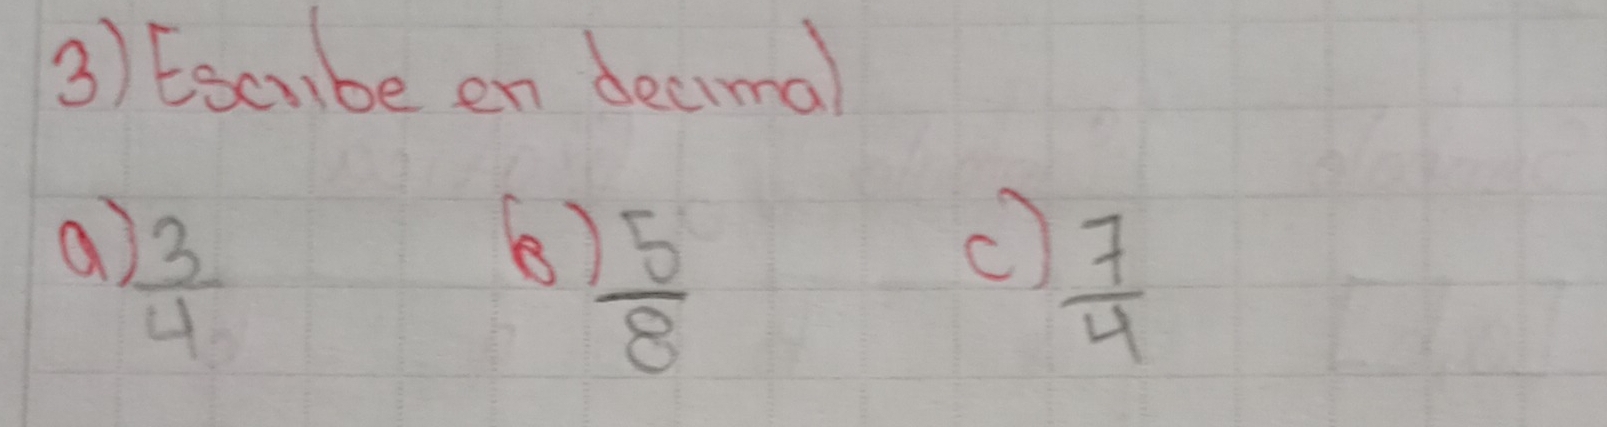 3) Escribe en decimal
a) 3/4 b) 5/8 c) 7/4